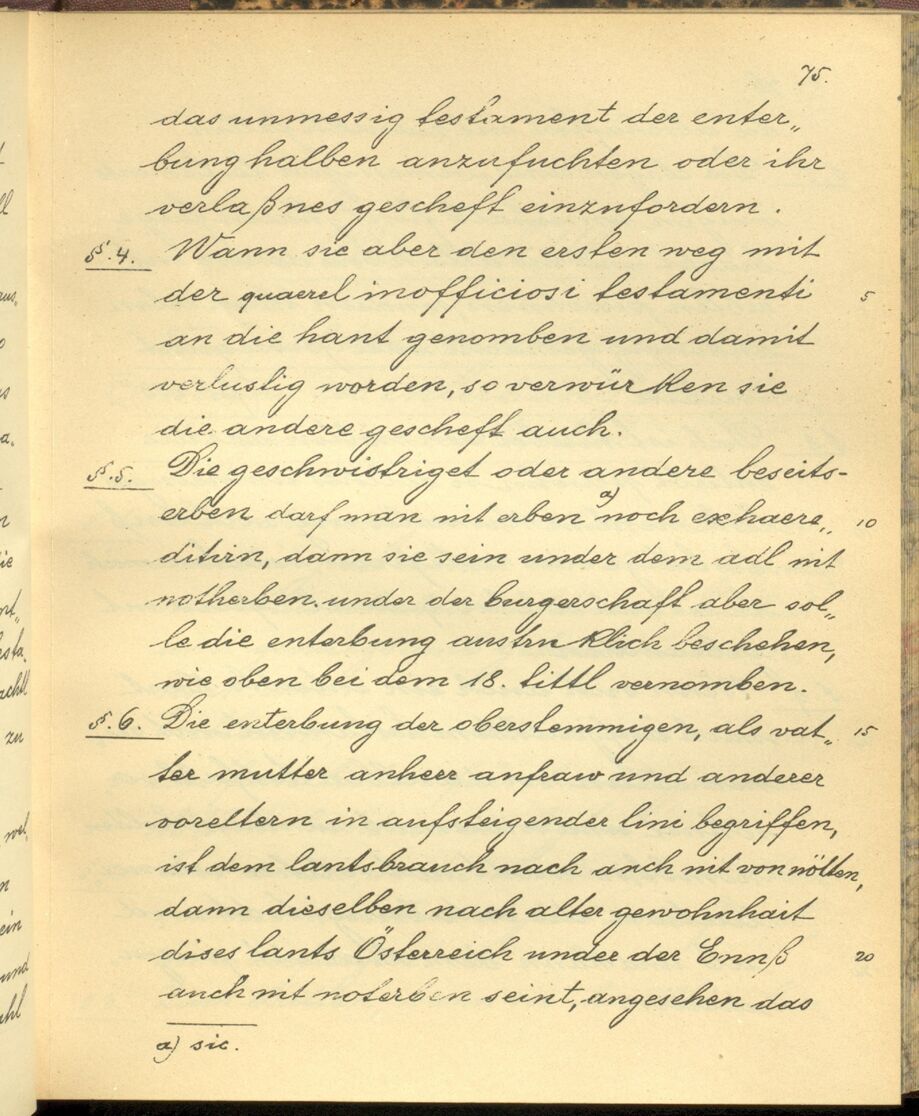 75.
das unmessig testament der enter„
bung halben anzufuchten oder ihr
verlaßnes gescheft einzufordern.
§.4. Wann sie aber den ersten weg mit
der quaerel inofficiosi testamenti 5
an die hant genomben und damit
verlustig worden, so verwürken sie
die andere gescheft auch.
§.5. Die geschwistriget oder andere beseits-
erben darf man nit erben a) noch exhaere„ 10
ditirn, dann sie sein under dem adl nit
notherben. under der burgerschaft aber sol„
le die enterbung austruklich beschehen,
wie oben bei dem 18. tittl vernomben.
§.6. Die enterbung der oberstemmigen, als vat„ 15
ter mutter anherr anfraw und anderer
voreltern in aufsteigender lini begriffen,
ist dem lantsbrauch nach auch nit von nötten,
dann dieselben nach alter gewohnhait
dises lants Österreich under der Ennß 20
auch nit noterben seint, angesehen das
a) sic.